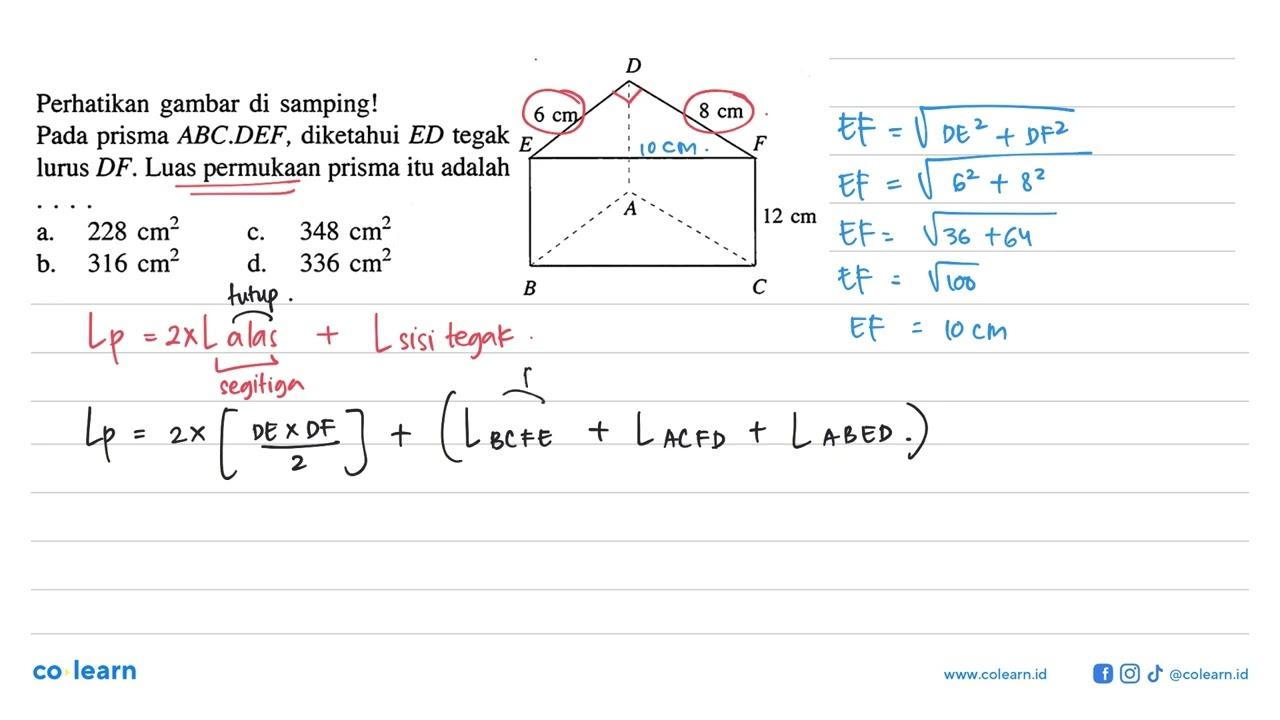 Perhatikan gambar di samping!
Pada prisma ABC.DEF, diketahui ED tegak
lurus DF. Luas permukaan prisma itu adalah
. . . .
a. 228 cm² c. 348 cm²
b. 316 cm² d. 336 cm²
D
6 cm 8 cm
E 10 cm. F
A
12 cm
B C
EF = √DE² + DF²
EF = √6² + 8²
EF = √36 + 64
EF = √100
EF = 10 cm
tutup.
Lp = 2x L alas + L sisi tegak.
segitiga
Lp = 2x [DE x DF / 2] + (L BCFE + L ACFD + L ABED.)
co learn
www.colearn.id @colearn.id